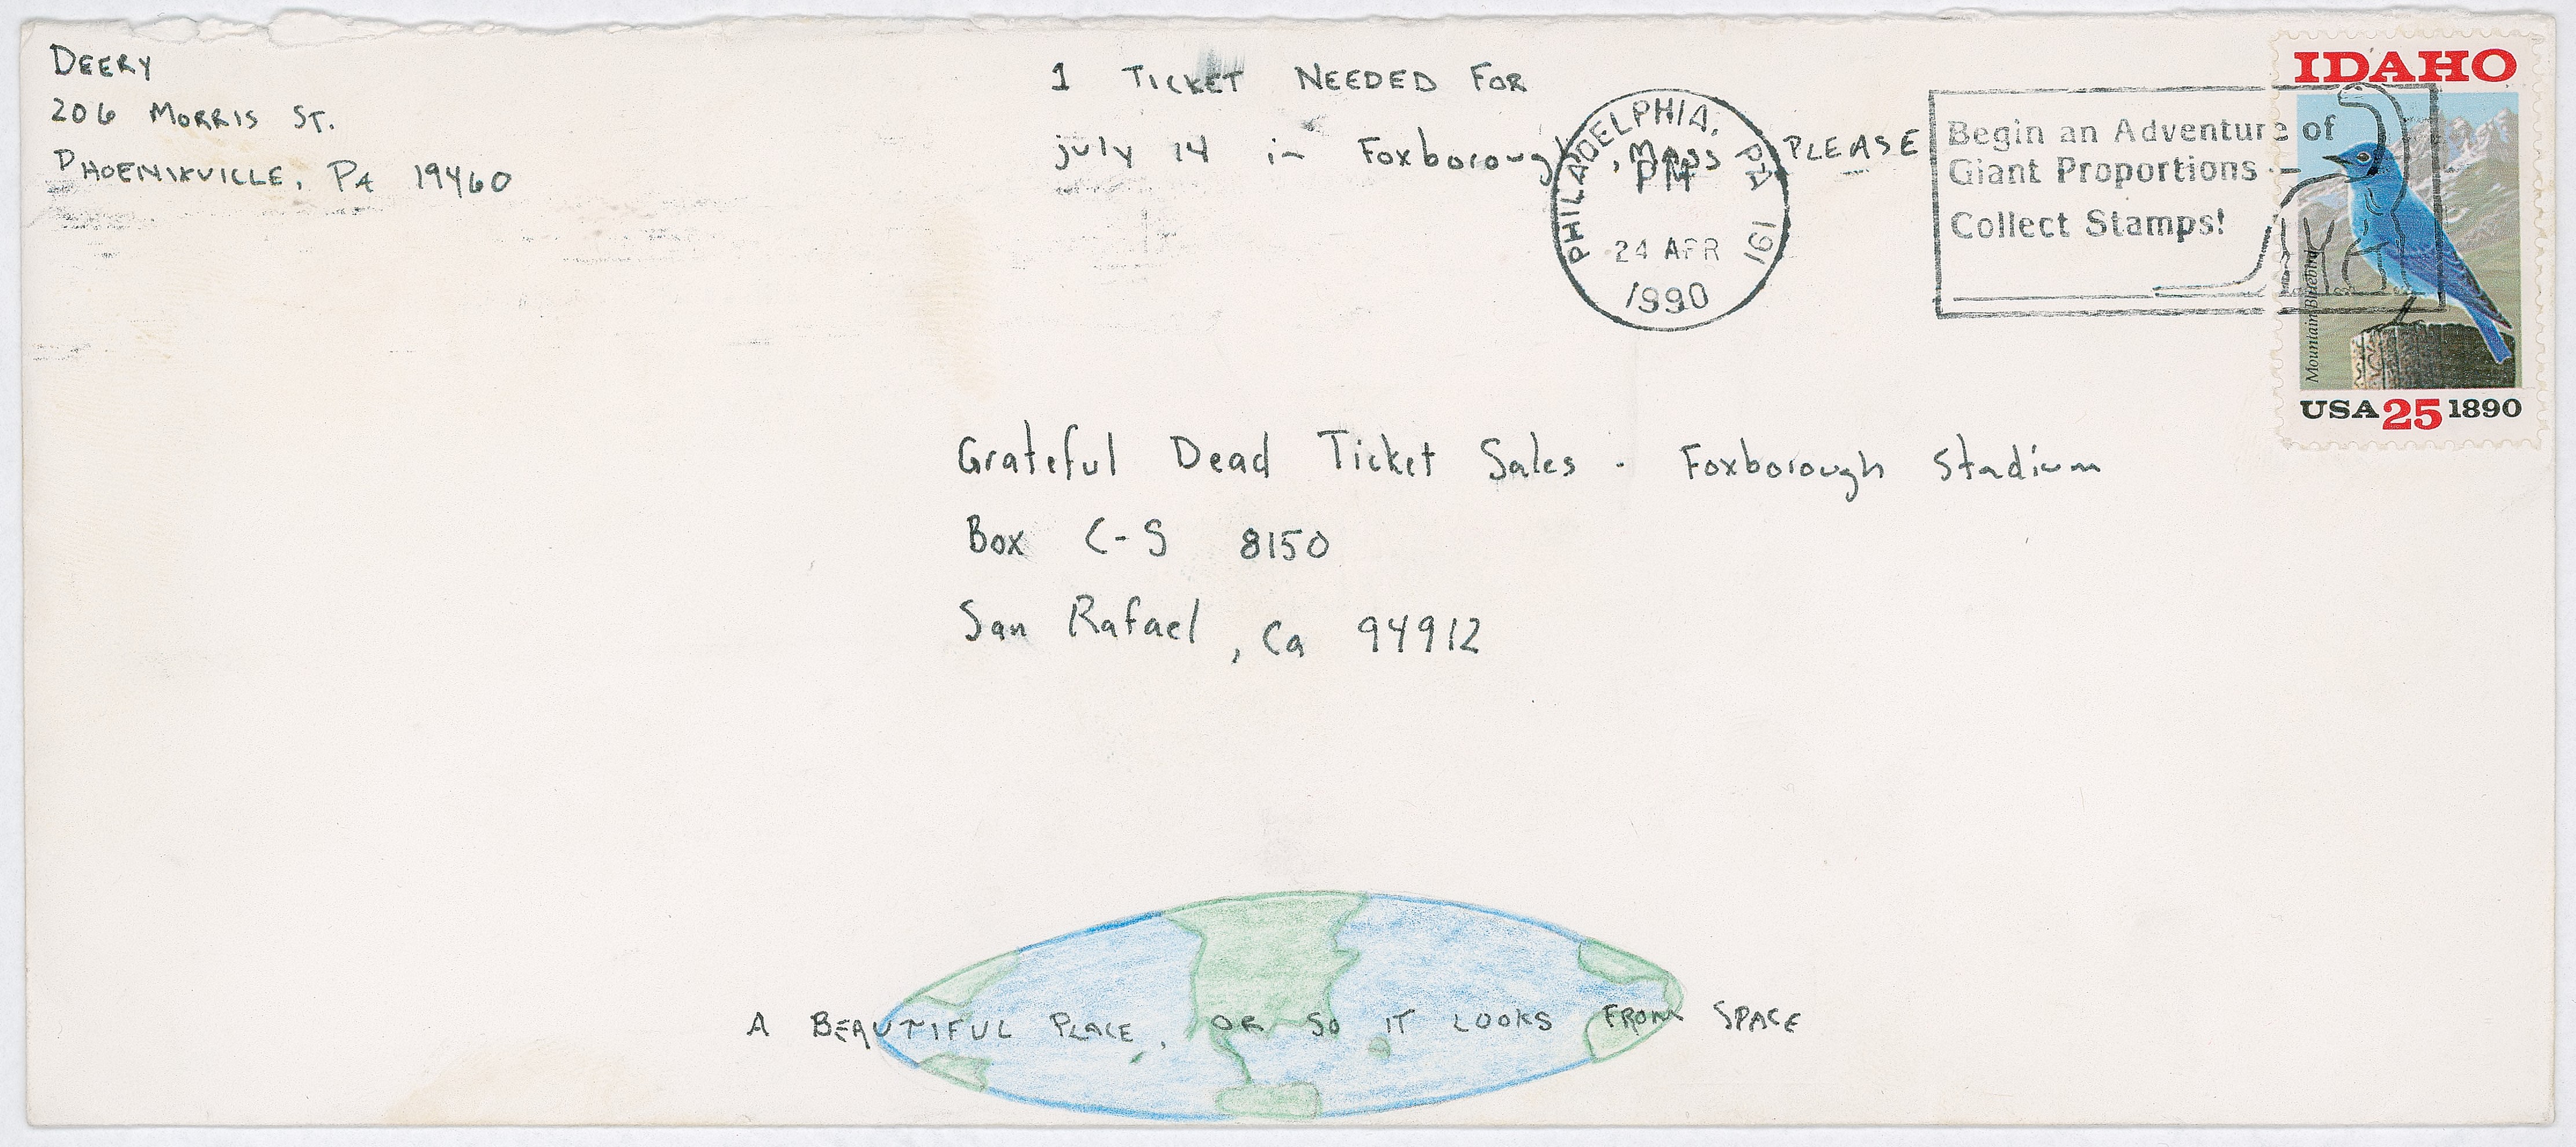 DEERY
206 MORRIS ST.
PHOENIXVILLE, PA 19460
1 TICKET NEEDED FOR
july 14 in Foxborough, Mass PLEASE
PHILADELPHIA, PA 191
PM
24 APR
1990
Begin an Adventure of
Giant Proportions -
Collect Stamps!
IDAHO
Mountain Bluebird
USA 25 1890
Grateful Dead Ticket Sales - Foxborough Stadium
Box C-S 8150
San Rafael, Ca 94912
A BEAUTIFUL PLACE, OR SO IT LOOKS FROM SPACE